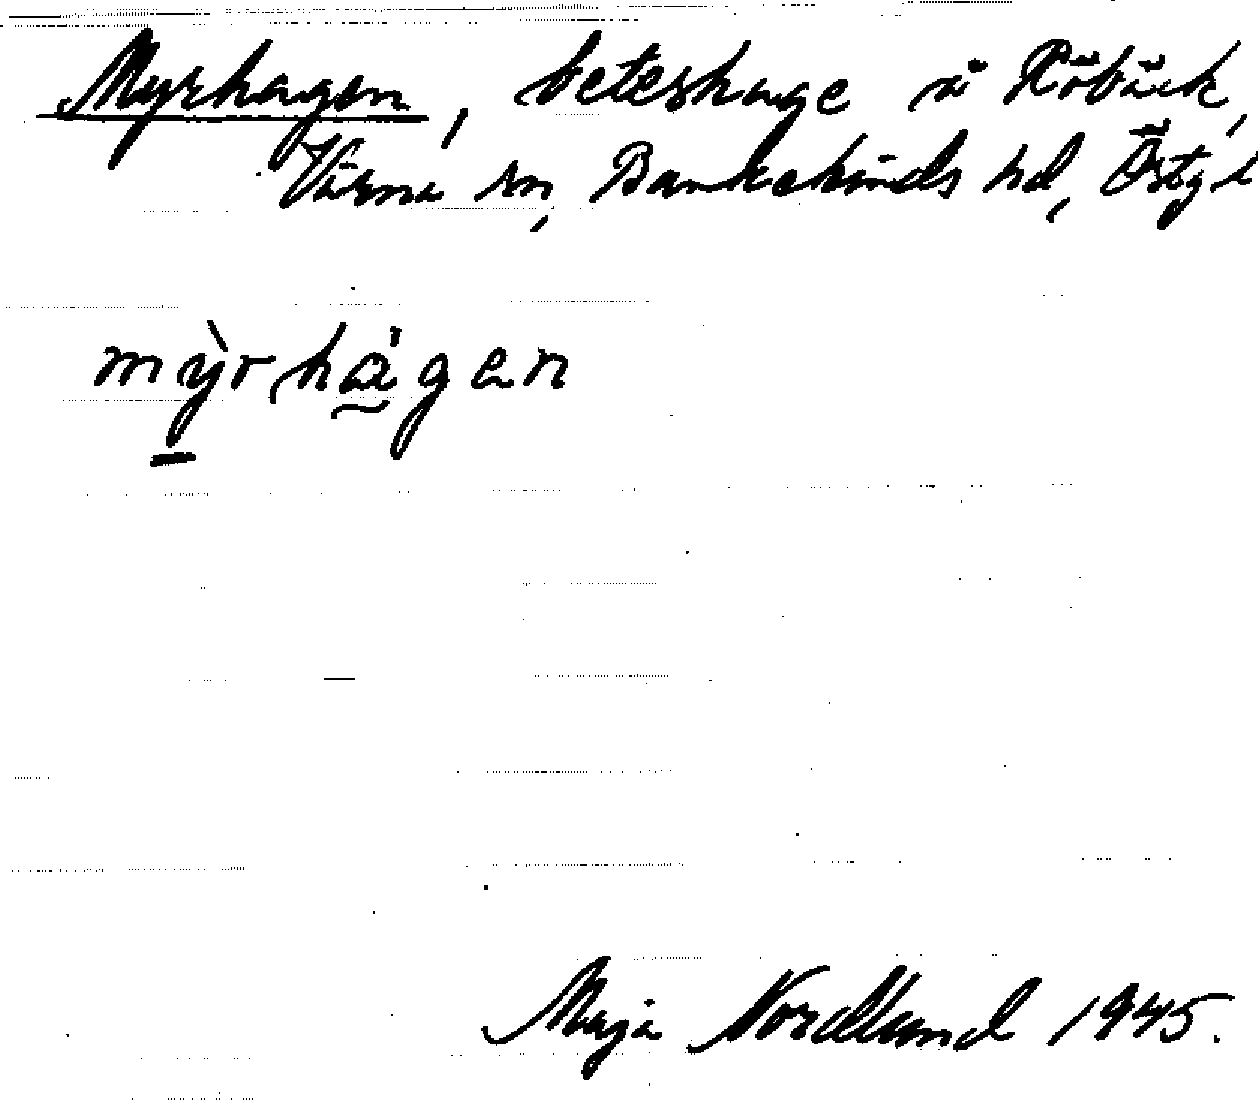 Myrhagen, beteshage å Röbäck,
Värna sn, Bankekinds hd, Östg.
mỳ̠rhågen
Maja Nordlund 1945.